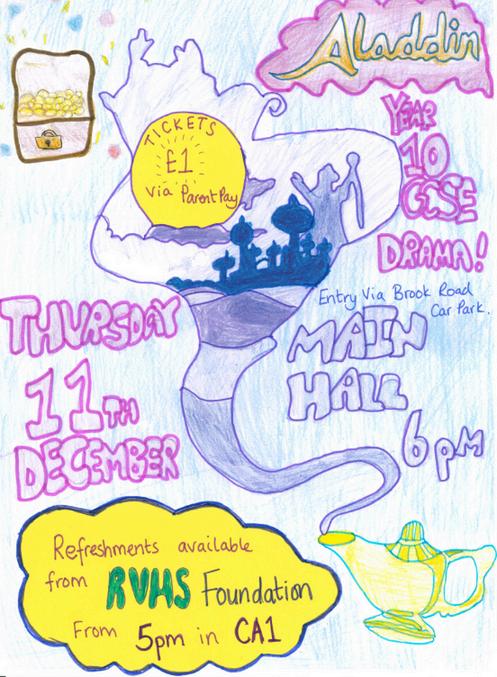 Aladdin
YEAR
10
GCSE
DRAMA!
TICKETS
£1
via ParentPay
Entry Via Brook Road
Car Park.
THURSDAY
11TH
DECEMBER
MAIN
HALL
6pm
Refreshments available
from RVHS Foundation
From 5pm in CA1